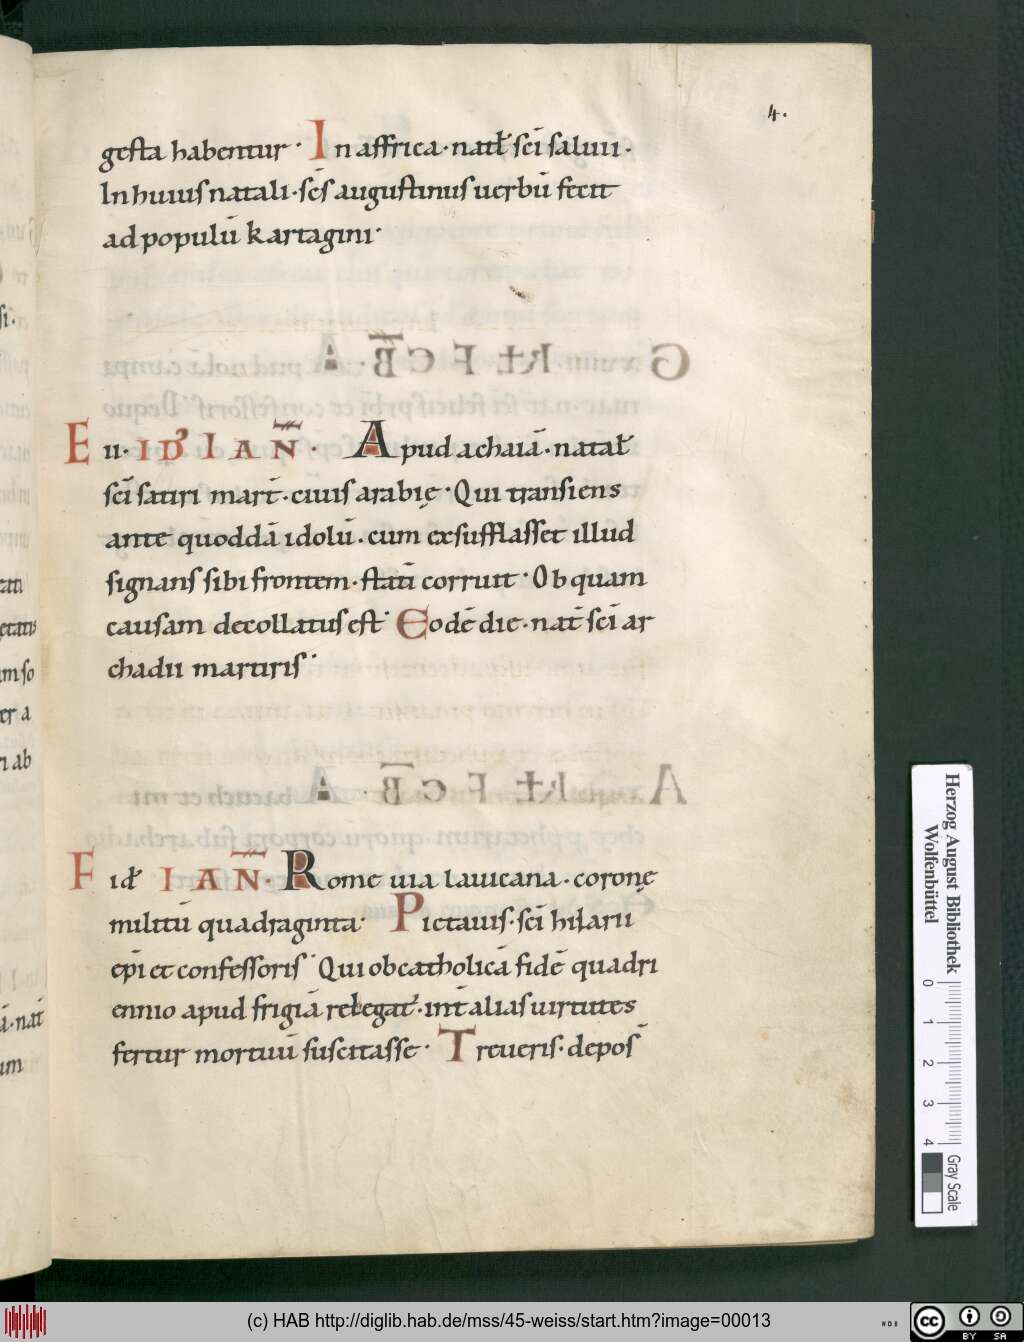 4.
gesta habentur. In affrica. natł sc̄i saluii.
In huius natali. sc̄s augustinus uerbū fecit
ad populū kartagini.
E ii. ID' IAN̄. Apud achaiā. natał
sc̄i satiri mart̄. ciuis arabię. Qui transiens
ante quoddā idolū. cum ęxsufflasset illud
signans sibi frontem. statī corruit. Ob quam
causam decollatus est. Eodē die. nat̄ sc̄i ar
chadii martiris.
F id' IAN̄. Rome uia lauicana. coronę
militū quadraginta. Pictauis. sc̄i hilarii
ep̄i et confessoris. Qui ob catholicā fidē quadri
ennio apud frigiā relegat'. int̄ alias uirtutes
fertur mortuū suscitasse. Treueris. depos̄
Herzog August Bibliothek
Wolfenbüttel
0 1 2 3 4
Gray Scale
(c) HAB http://diglib.hab.de/mss/45-weiss/start.htm?image=00013
cc BY SA